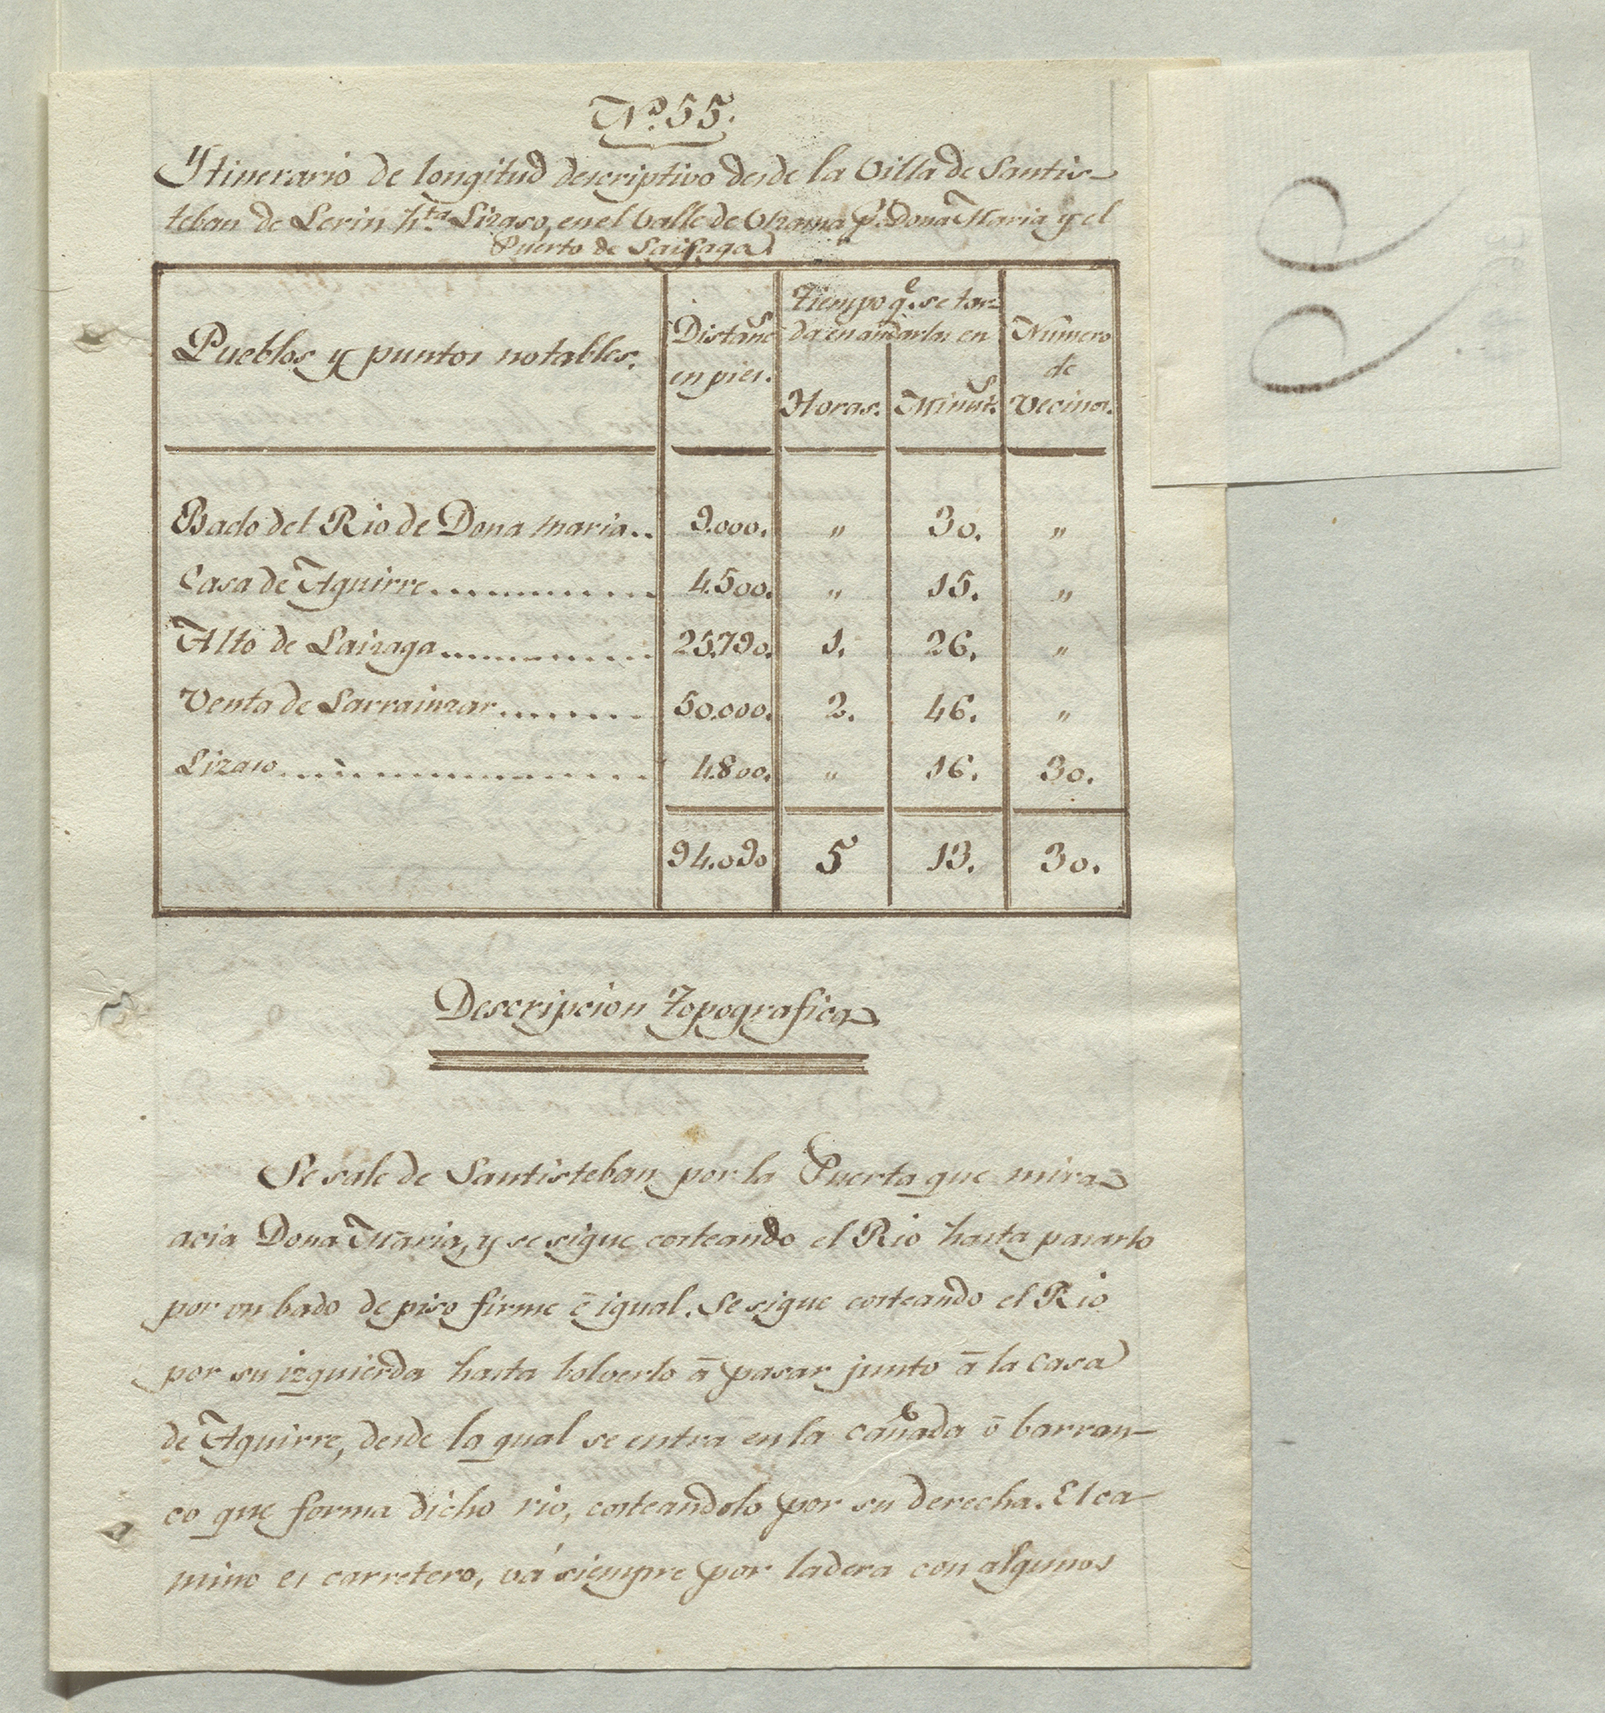 Nº. 55.
Ytinerario de longitud descriptivo desde la Villa de Santis-
teban de Lerin hta. Lizaso, en el Valle de Ulzama pr. Dona Maria y el
Puerto de Saizaga.
Pueblos y puntos notables.
Distancs en pies.
Tiempo qe. se tar-
da en andarlas en
Horas.
Minuts.
Numero
de
Vecinos.
Bado del Rio de Dona Maria.. 9.000. " 30. "
Casa de Aguirre............ 4.500. " 15. "
Alto de Laizaga............ 25.790. 1. 26. "
Venta de Larrainzar........ 50.000. 2. 46. "
Lizaso..................... 4.800. " 16. 30.
94.090 5 13. 30.
Descripcion Topografica
Se sale de Santisteban por la Puerta que mira
acia Dona Maria, y se sigue costeando el Rio hasta pasarlo
por un bado de piso firme ē igual. Se sigue costeando el Rio
por su izquierda hasta bolverlo ā pasar junto ā la Casa
de Aguirre, desde la qual se entra en la cañada ō barran-
co que forma dicho rio, costeandolo por su derecha. El ca-
mino es carretero, vá siempre por ladera con algunos
92